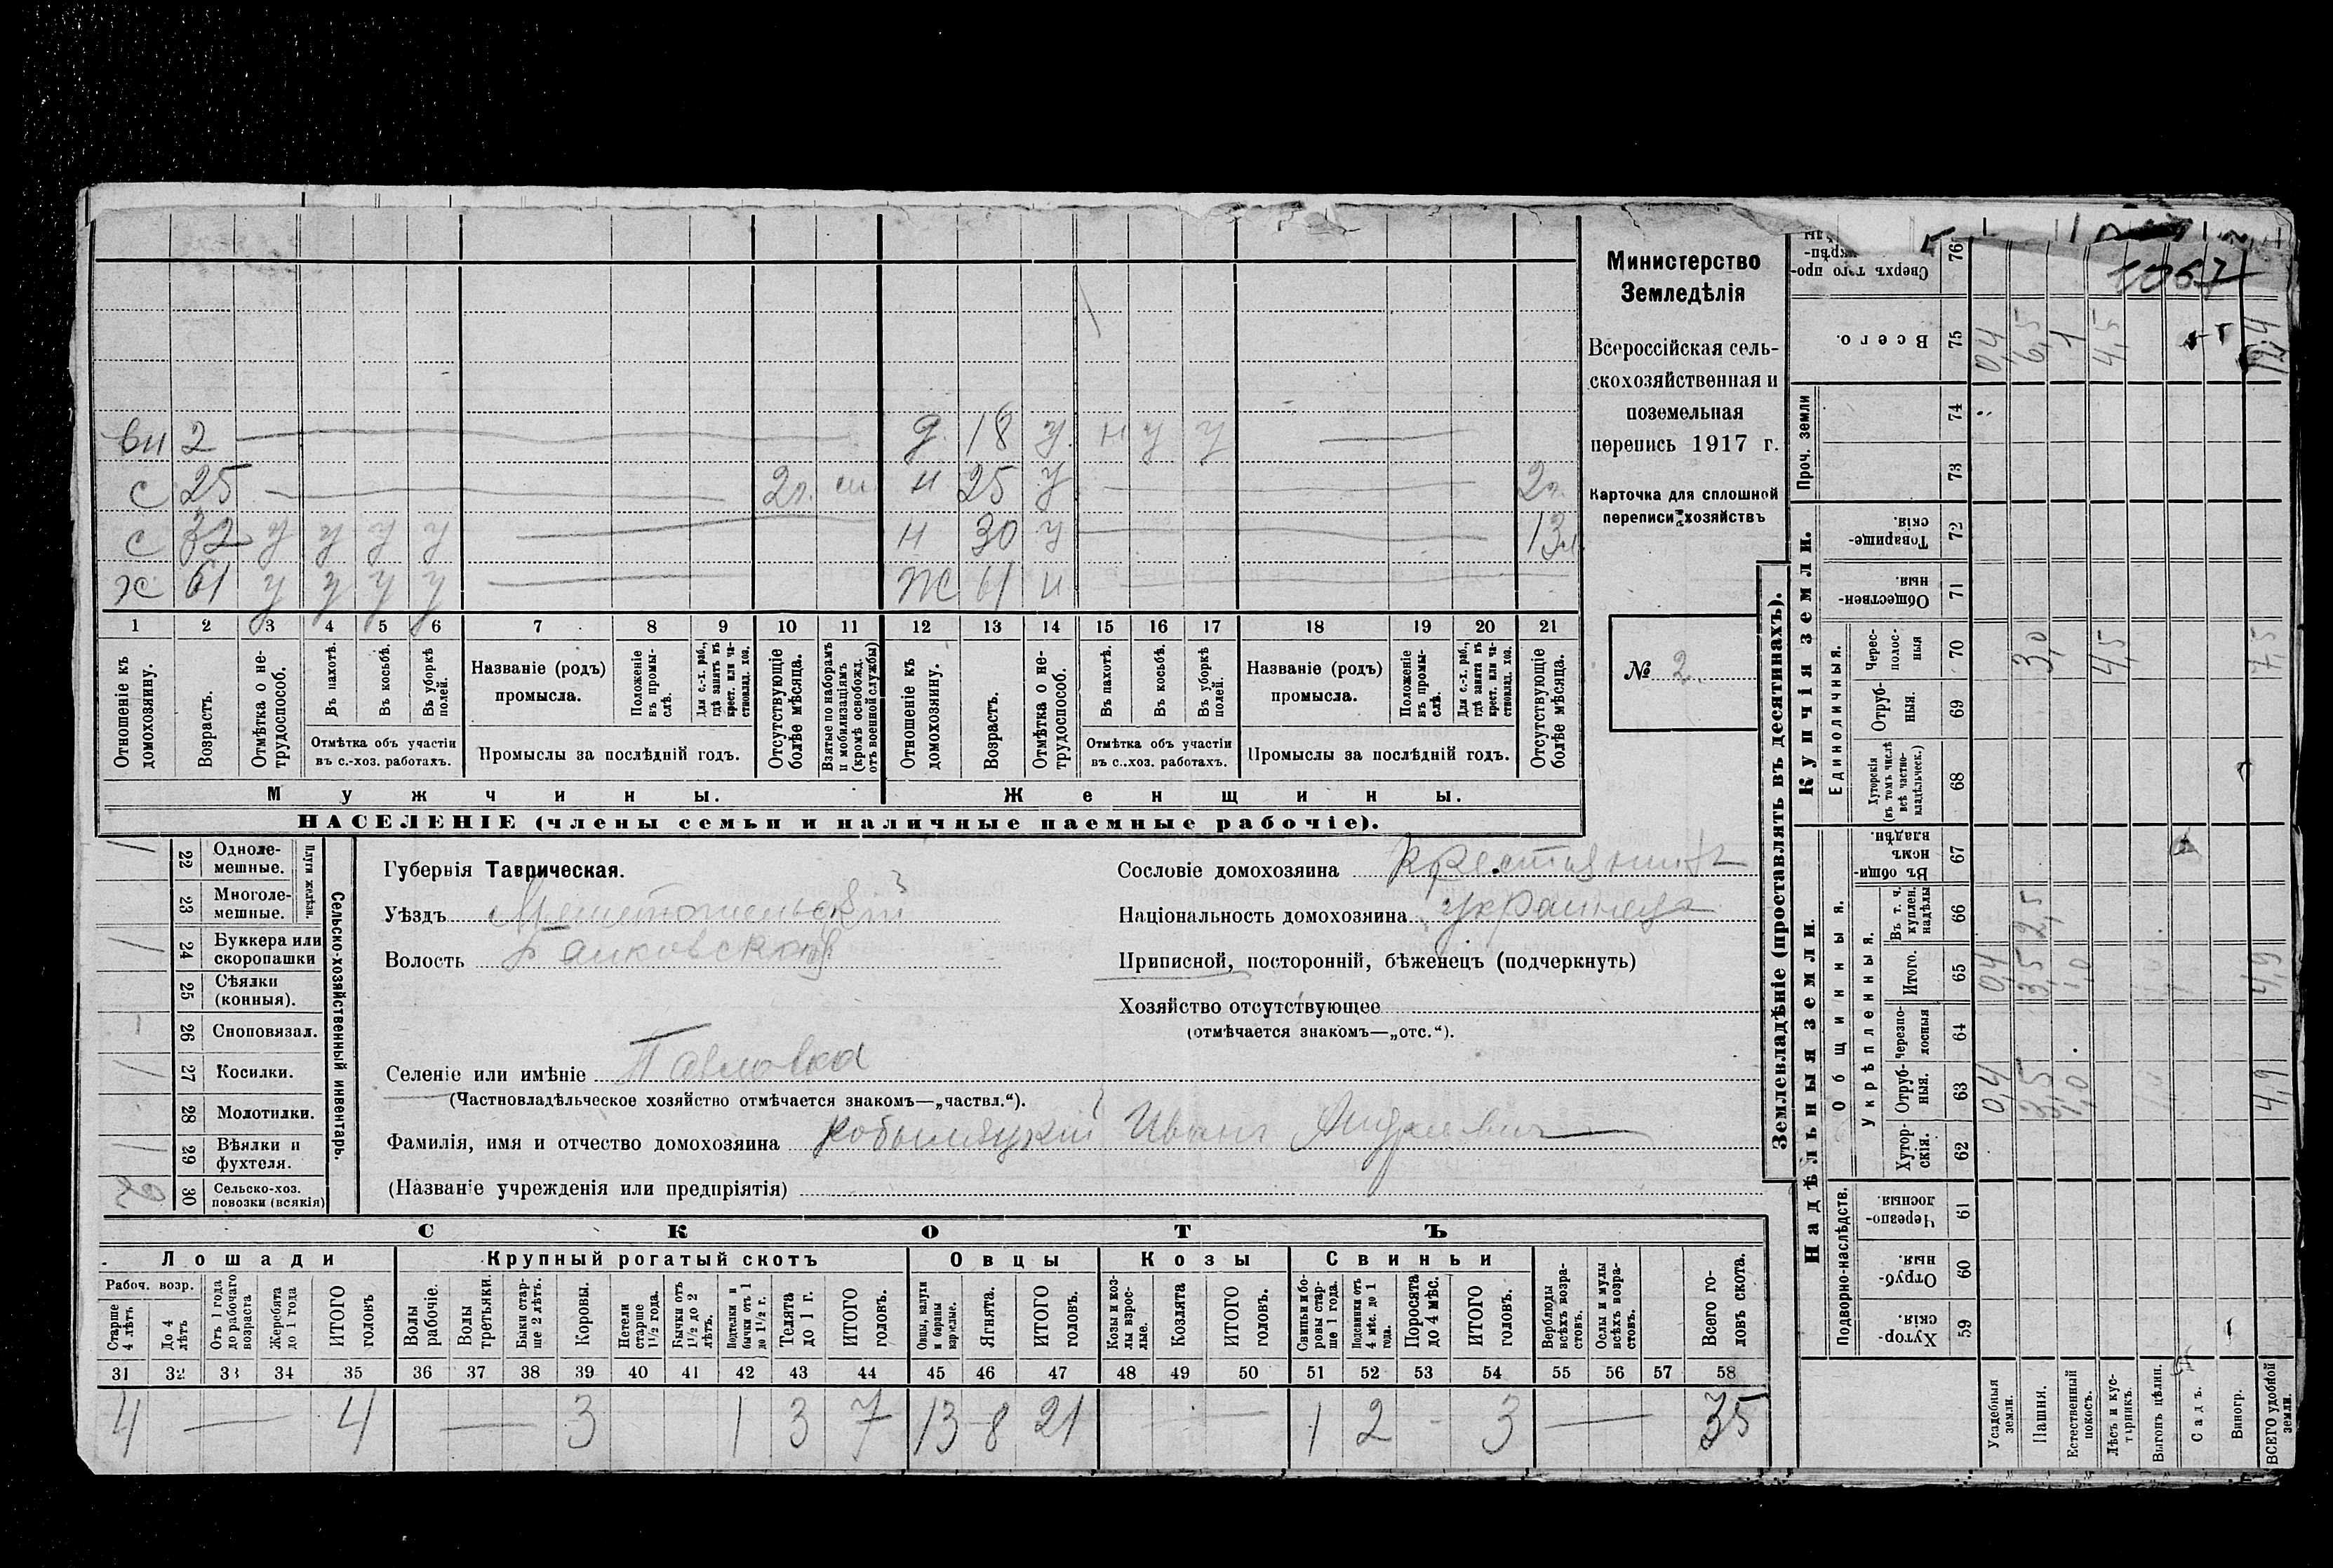 вн 2 д. 18 у. н у у
с 25 2г. н 25 у 2г.
с 32 у у у у н 30 у
ж 61 у у у у ж 61 н
1 2 3 4 5 6 7 8 9 10 11 12 13 14 15 16 17 18 19 20 21
Отношеніе къ домохозяину.
Возрастъ.
Отмѣтка о не-
трудоспособ.
Въ пахотѣ.
Въ косьбѣ.
Въ уборкѣ
полей.
Отмѣтка объ участіи
въ с.-хоз. работахъ.
Названіе (родъ)
промысла.
Положеніе
въ промы-
слѣ.
Для с.-х. раб.,
гдѣ занятъ въ
крест. или ча-
стновлад. хоз.
Промыслы за послѣдній годъ.
Отсутствующіе
болѣе мѣсяца.
Взятые по наборамъ
и мобилизаціямъ
(кромѣ освобожд.
отъ военной службы)
Отношеніе къ
домохозяину.
Возрастъ.
Отмѣтка о не-
трудоспособ.
Въ пахотѣ.
Въ косьбѣ.
Въ уборкѣ
полей.
Отмѣтка объ участіи
въ с.-хоз. работахъ.
Названіе (родъ)
промысла.
Положеніе
въ промы-
слѣ.
Для с.-х. раб.,
гдѣ занята въ
крест. или ча-
стновлад. хоз.
Промыслы за послѣдній годъ.
Отсутствующіе
болѣе мѣсяца.
Мужчины.
Женщины.
НАСЕЛЕНІЕ (члены семьи и наличные наемные рабочіе).
Министерство
Земледѣлія
Всероссійская сель-
скохозяйственная и
поземельная
перепись 1917 г.
Карточка для сплошной
переписи хозяйствъ
№ 2
Плуги желѣзн.
22 Одноле-
мешные.
23 Многоле-
мешные.
24 Буккера или
скоропашки
25 Сѣялки
(конныя).
26 Сноповязал.
27 Косилки.
28 Молотилки.
29 Вѣялки и
фухтеля.
30 Сельско-хоз.
повозки (всякія)
Сельско-хозяйственный инвентарь.
Губернія Таврическая.
Уѣздъ Мелитопольскій
Волость
Селеніе или имѣніе Павловка
(Частновладѣльческое хозяйство отмѣчается знакомъ—„частвл.“).
Фамилія, имя и отчество домохозяина Кобыляцкій Иванъ Андреевич
(Названіе учрежденія или предпріятія)
Сословіе домохозяина крестьянинъ
Національность домохозяина украинецъ
Приписной, посторонній, бѣженецъ (подчеркнуть)
Хозяйство отсутствующее
(отмѣчается знакомъ—„отс.“).
СКОТЪ
Лошади
Крупный рогатый скотъ
Овцы
Козы
Свиньи
Рабоч. возр.
Старше
4 лѣтъ
До 4
лѣтъ
Отъ 1 года
до рабочаго
возраста
Жеребята
до 1 года
ИТОГО
головъ
Волы
рабочіе.
Волы
третьяки.
Быки стар-
ше 2 лѣтъ.
Коровы.
Нетели
старше
1½ года.
Бычки отъ
1½ до 2
лѣтъ.
Подтелки и
бычки отъ 1
до 1½ г.
Телята
до 1 г.
ИТОГО
головъ.
Овцы, валухи
и бараны
взрослые.
Ягнята.
ИТОГО
головъ.
Козы и коз-
лы взрос-
лые.
Козлята
ИТОГО
головъ.
Свиньи и бо-
ровы стар-
ше 1 года.
Подсвинки отъ
4 мѣс. до 1
года.
Поросята
до 4 мѣс.
ИТОГО
головъ.
Верблюды
всѣхъ возра-
стовъ.
Ослы и мулы
всѣхъ возра-
стовъ.
Всего го-
ловъ скота.
31 32 33 34 35 36 37 38 39 40 41 42 43 44 45 46 47 48 49 50 51 52 53 54 55 56 57 58
4 4 3 1 3 7 13 8 21 1 2 3 35
Землевладѣніе (проставлять въ десятинахъ).
Купчія земли.
Надѣльныя земли.
Сверхъ того про-
76
Всего. 75 0,4 6,5 1 4,5 12,4
Проч. земли 74 73
Товарище-
скія. 72
Обществен-
ныя. 71
Единоличныя.
Черес-
полос-
ныя 70 3,0 4,5 7,5
Отруб-
ныя. 69
Хуторскія
(въ томъ числѣ
всѣ частно-
владѣльческ.) 68
Въ общин-
номъ
владѣн. 67
Общинныя.
Укрѣпленныя.
Въ т. ч.
куплен.
надѣлы 66 2,5
Итого. 65 0,4 3,5 1,0 4,9
Черезпо-
лосныя 64
Отруб-
ныя. 63 0,4 3,5 1,0 4,9
Хутор-
скія. 62
Подворно-наслѣдств.
Черезпо-
лосныя 61
Отруб-
ныя 60
Хутор-
скія. 59
Усадебныя
земли.
Пашня.
Естественный
покосъ.
Лѣсъ и кус-
тарникъ.
Выгонъ цѣлин.
Садъ.
Виногр.
ВСЕГО удобной
земли.